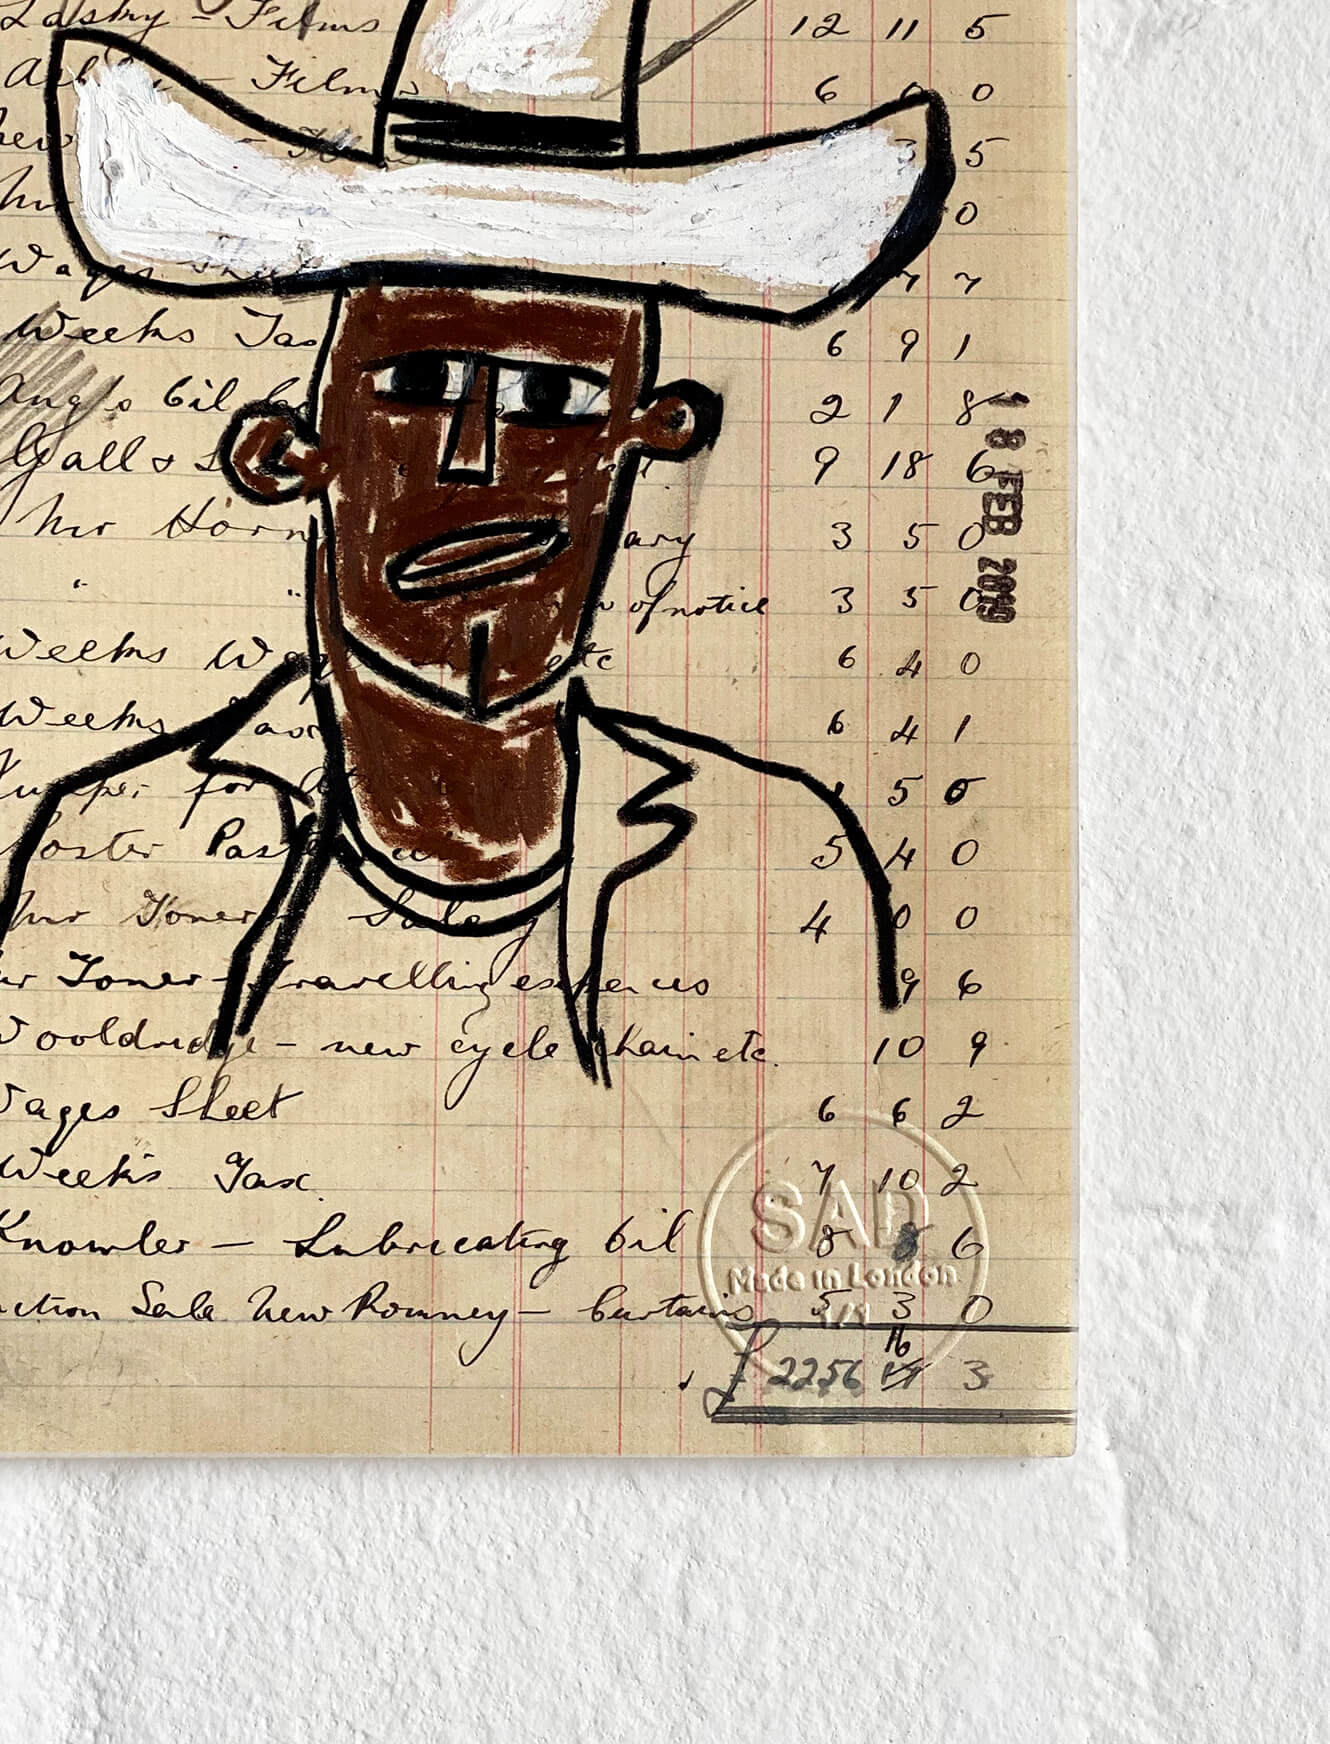 Lasky - Films 12 11 5
- Films 6 0
5
Mr 0
Wages Sheet 7 7
Weeks Tax 6 9 1
oil 2 1 8
Gall & 9 18 6
Mr Horn ary 3 5 0
" " of notice 3 5 0
Weeks etc 6 4 0
Weeks Tax 6 4 1
for 5 0
Poster Paste 5 4 0
Mr Toner Salary 4 0 0
Mr Toner - Travelling expenses 9 6
Wooldridge - new cycle chain etc. 10 9
Wages Sheet 6 6 2
Weeks Tax. 7 10 2
Knowler - Lubricating Oil 8 8 6
Auction Sale New Romney - Curtains 5 3 0
£ 2256 16 3
18 FEB 2019
SAD
Made in London
1/1